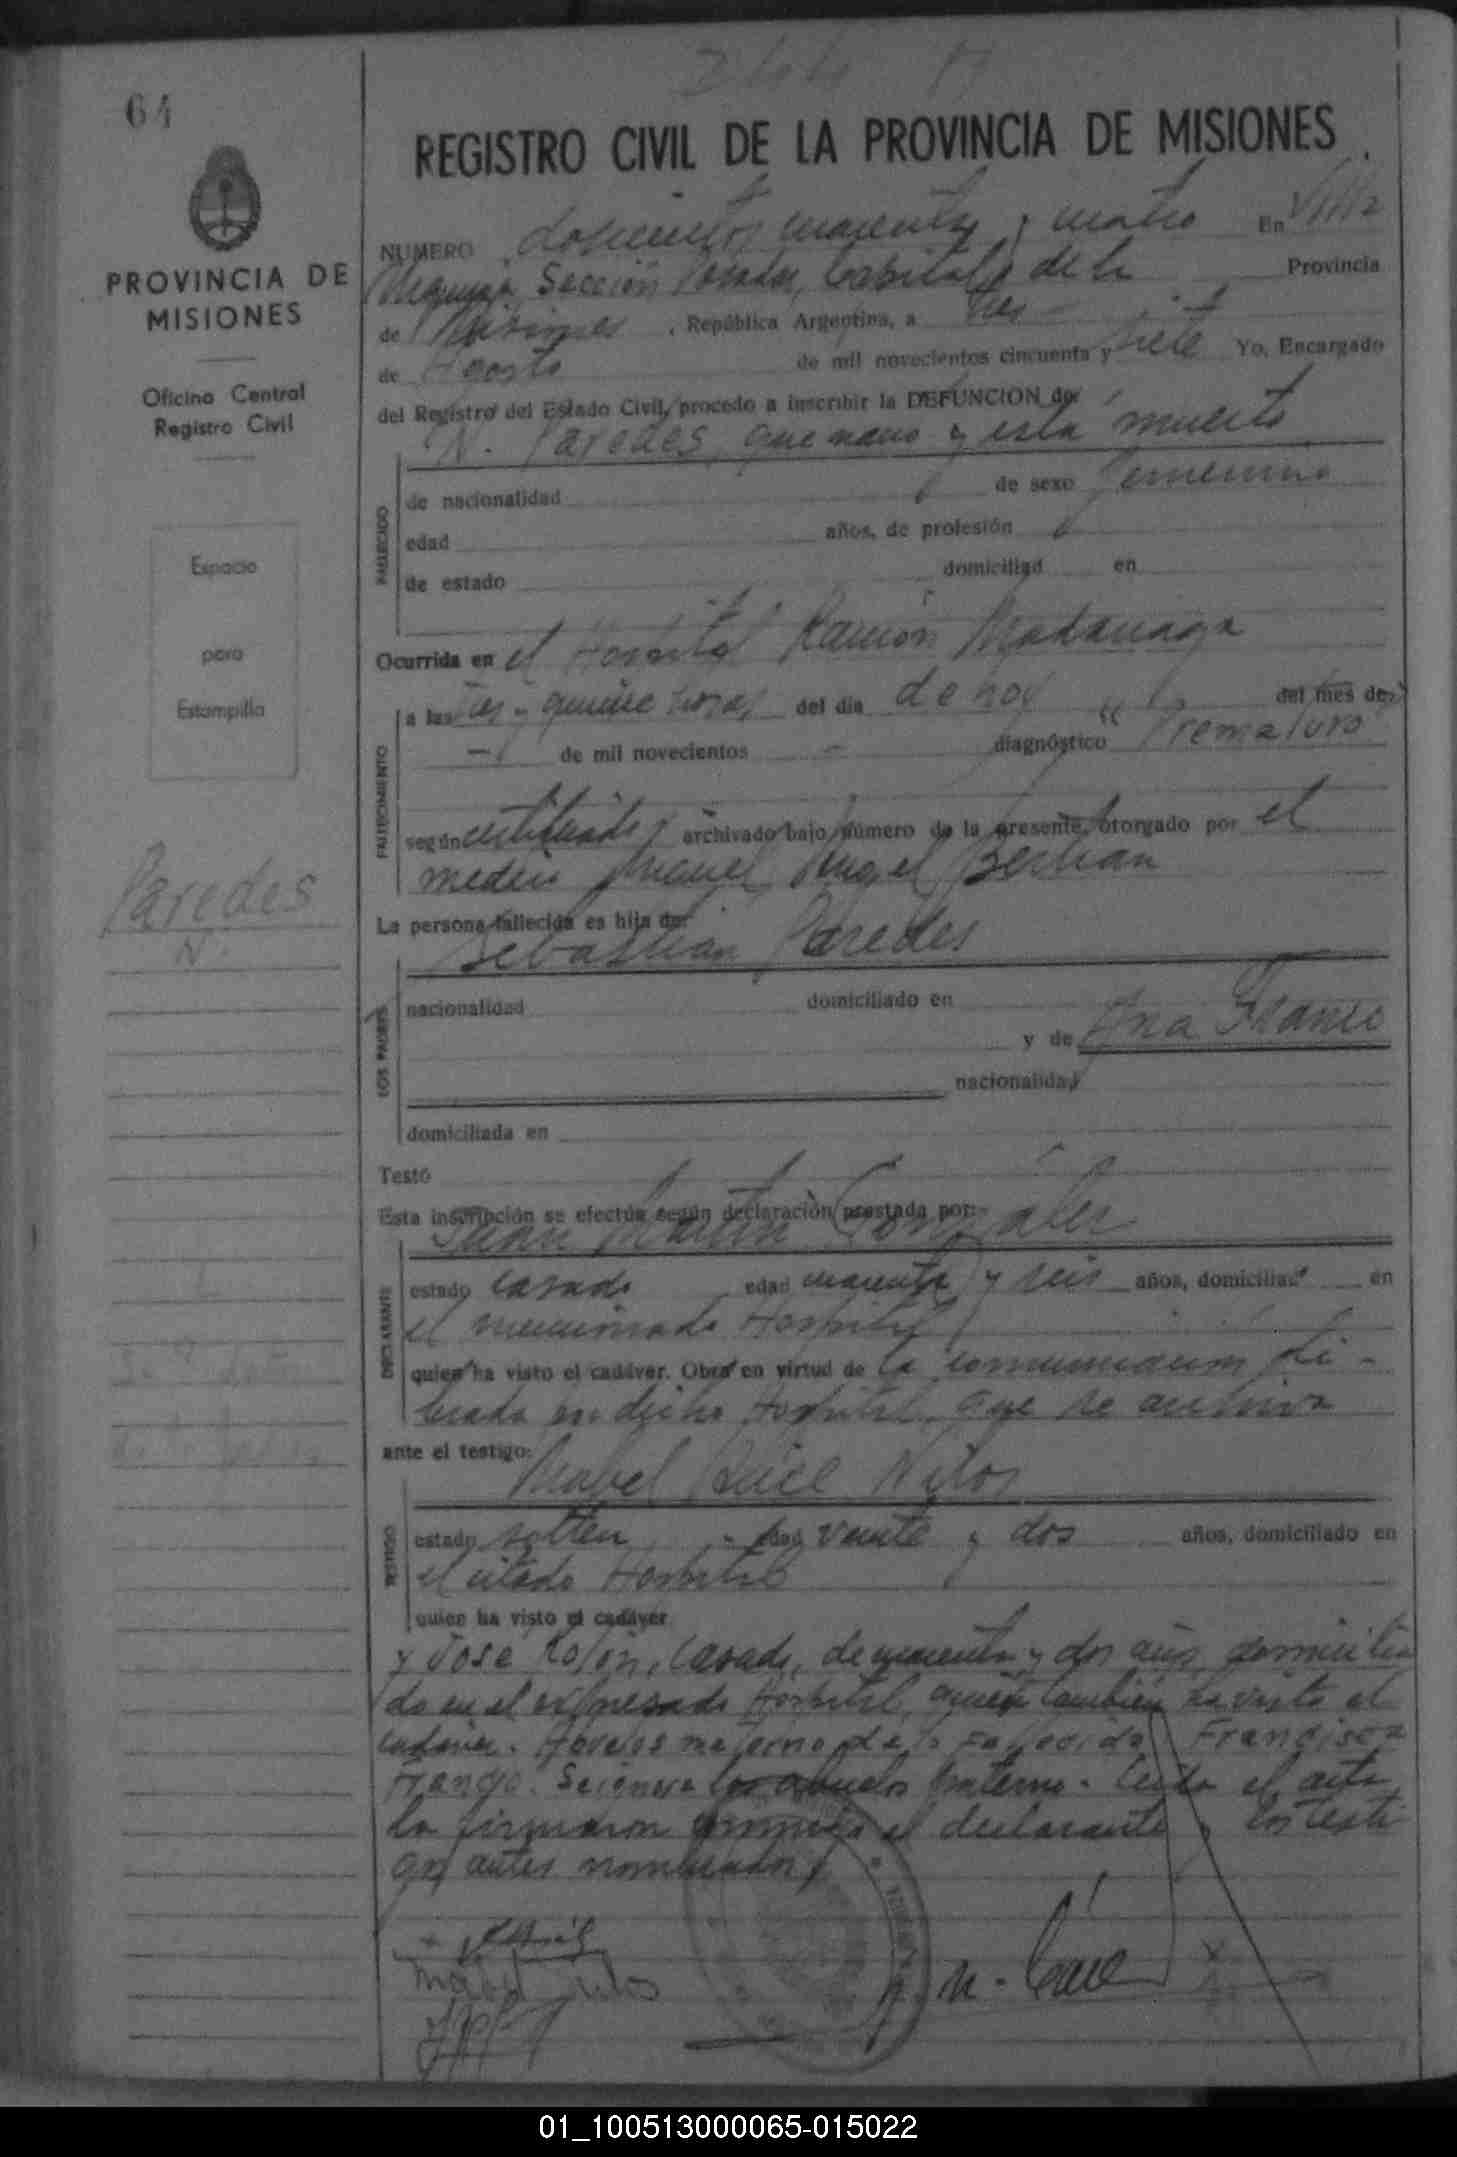 64
PROVINCIA DE
MISIONES
Oficina Central
Registro Civil
Espacio
para
Estampilla
Paredes
N.
REGISTRO CIVIL DE LA PROVINCIA DE MISIONES
NUMERO doscientos cuarenta y cuatro En Villa
Sección Posadas, Capital de la Provincia
de Misiones, República Argentina, a tres
de Agosto de mil novecientos cincuenta y siete Yo, Encargado
del Registro del Estado Civil, procedo a inscribir la DEFUNCION de:
N. Paredes, que nació y está muerto
FALLECIDO
de nacionalidad de sexo femenino
edad años, de profesión
de estado domiciliad en
Ocurrida en el Hospital Ramón Madariaga
FALLECIMIENTO
a las tres y quince horas del día de hoy del mes de
— de mil novecientos - diagnóstico "Prematuro"
según certificado archivado bajo número de la presente, otorgado por el
médico Manuel Angel Bertran
La persona fallecida es hija de:
Sebastian Paredes
LOS PADRES
nacionalidad domiciliado en
y de Ana Franco
nacionalidad
domiciliada en
Testó
Esta inscripción se efectúa según declaración prestada por:
Juan Martin Gonzalez
DECLARANTE
estado casado edad cuarenta y seis años, domiciliado en
el mencionado Hospital
quien ha visto el cadáver. Obra en virtud de la comunicacion li-
brada por dicho Hospital que se archiva
ante el testigo:
Mabel Nilos
TESTIGO
estado soltera edad veinte y dos años, domiciliado en
el citado Hospital
quien ha visto el cadáver
y José Rolón, casado, de cuarenta y dos años domicilia
do en el expresado Hospital, quien también ha visto el
cadáver. Abuelos materno de la Fallecida Francisca
Franco. Se ignora los abuelos paterno. Leída el acta
la firmaron conmigo el declarante y los testi
gos antes nombrados
Mabel Nilos
01_100513000065-015022